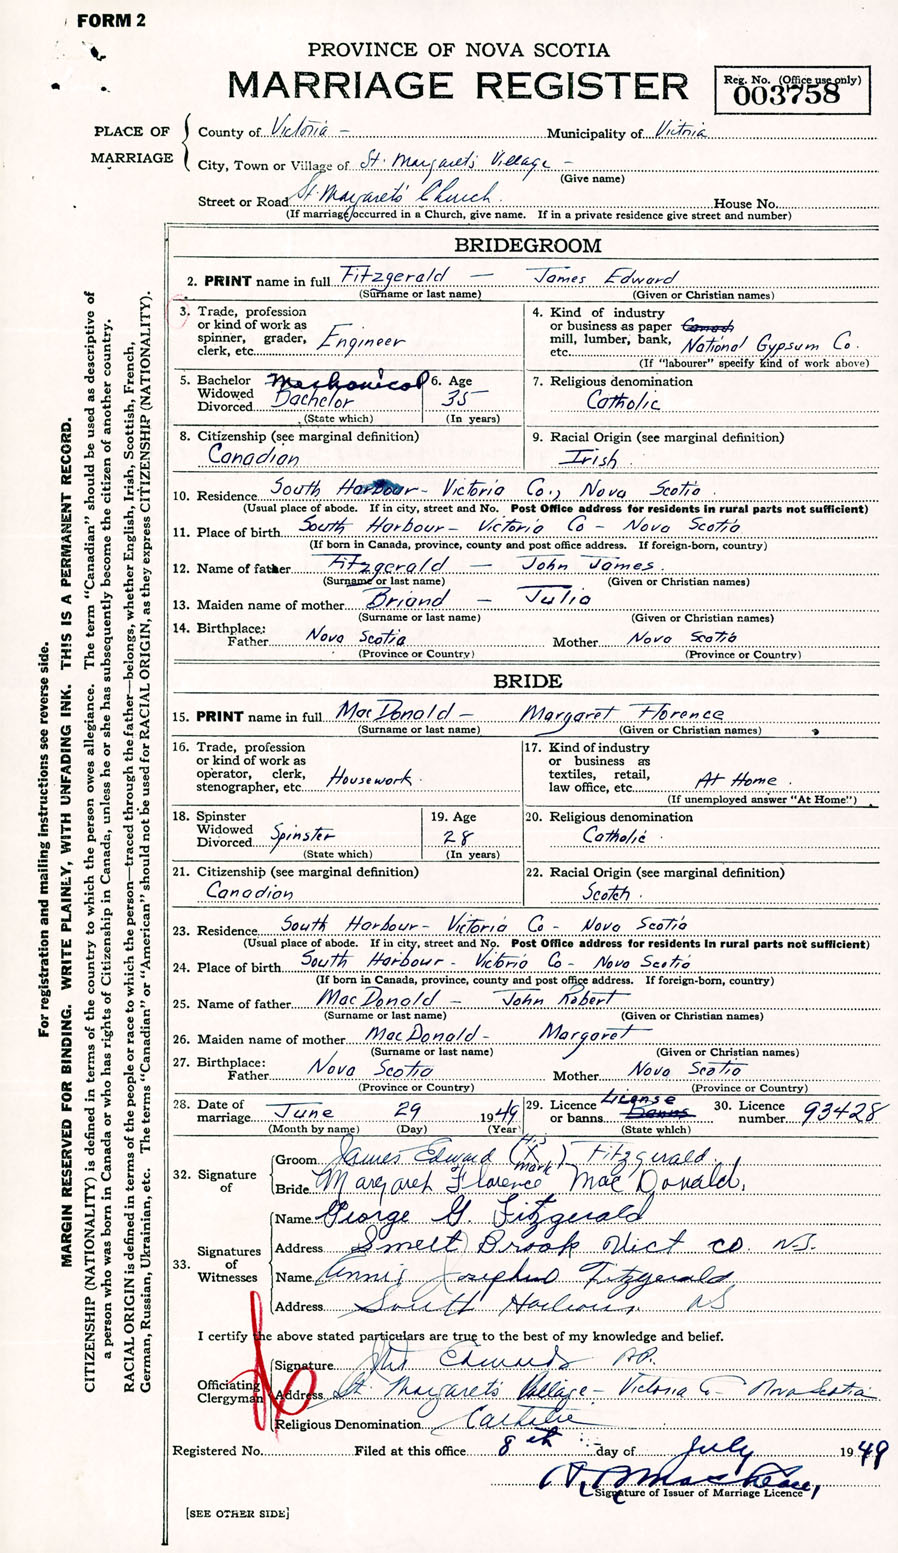 FORM 2
PROVINCE OF NOVA SCOTIA
MARRIAGE REGISTER
Reg. No. (Office use only)
003758
PLACE OF MARRIAGE
County of Victoria - Municipality of Victria
City, Town or Village of St. Margaret's Village -
(Give name)
Street or Road St. Margaret's Church House No.
(If marriage occurred in a Church, give name. If in a private residence give street and number)
BRIDEGROOM
2. PRINT name in full Fitzgerald - James Edward
(Surname or last name) (Given or Christian names)
3. Trade, profession or kind of work as spinner, grader, clerk, etc. Engineer
Mechanical
4. Kind of industry or business as paper mill, lumber, bank, etc. National Gypsum Co.
(If "labourer" specify kind of work above)
5. Bachelor Widowed Divorced Bachelor
(State which)
6. Age 35
(In years)
7. Religious denomination Catholic
8. Citizenship (see marginal definition) Canadian
9. Racial Origin (see marginal definition) Irish
10. Residence South Harbour - Victoria Co., Nova Scotia
(Usual place of abode. If in city, street and No. Post Office address for residents in rural parts not sufficient)
11. Place of birth South Harbour - Victoria Co - Nova Scotia
(If born in Canada, province, county and post office address. If foreign-born, country)
12. Name of father Fitzgerald - John James
(Surname or last name) (Given or Christian names)
13. Maiden name of mother Briand - Julia
(Surname or last name) (Given or Christian names)
14. Birthplace: Father Nova Scotia Mother Nova Scotia
(Province or Country) (Province or Country)
BRIDE
15. PRINT name in full MacDonald - Margaret Florence
(Surname or last name) (Given or Christian names)
16. Trade, profession or kind of work as operator, clerk, stenographer, etc Housework
17. Kind of industry or business as textiles, retail, law office, etc. At Home
(If unemployed answer "At Home")
18. Spinster Widowed Divorced Spinster
(State which)
19. Age 28
(In years)
20. Religious denomination Catholic
21. Citizenship (see marginal definition) Canadian
22. Racial Origin (see marginal definition) Scotch
23. Residence South Harbour - Victoria Co - Nova Scotia
(Usual place of abode. If in city, street and No. Post Office address for residents in rural parts not sufficient)
24. Place of birth South Harbour - Victoria Co - Nova Scotia
(If born in Canada, province, county and post office address. If foreign-born, country)
25. Name of father MacDonald - John Robert
(Surname or last name) (Given or Christian names)
26. Maiden name of mother MacDonald - Margaret
(Surname or last name) (Given or Christian names)
27. Birthplace: Father Nova Scotia Mother Nova Scotia
(Province or Country) (Province or Country)
28. Date of marriage June 29 1949
(Month by name) (Day) (Year)
29. Licence or banns License Banns
(State which)
30. Licence number 93428
32. Signature of
Groom James Edward (His X mark) Fitzgerald
Bride Margaret Florence MacDonald
33. Signatures of Witnesses
Name George G. Fitzgerald
Address Smelt Brook Vict co. N.S.
Name Josephine Fitzgerald
Address South Harbour NS
I certify the above stated particulars are true to the best of my knowledge and belief.
Officiating Clergyman
Signature Edwards P.P.
Address St. Margaret's Village - Victoria Co - Nova Scotia
Religious Denomination Catholic
Registered No. Filed at this office 8th day of July 1949
Signature of Issuer of Marriage Licence
[SEE OTHER SIDE]
For registration and mailing instructions see reverse side.
MARGIN RESERVED FOR BINDING. WRITE PLAINLY, WITH UNFADING INK. THIS IS A PERMANENT RECORD.
CITIZENSHIP (NATIONALITY) is defined in terms of the country to which the person owes allegiance. The term "Canadian" should be used as descriptive of
a person who was born in Canada or who has rights of Citizenship in Canada, unless he or she has subsequently become the citizen of another country.
RACIAL ORIGIN is defined in terms of the people or race to which the person—traced through the father—belongs, whether English, Irish, Scottish, French,
German, Russian, Ukrainian, etc. The terms "Canadian" or "American" should not be used for RACIAL ORIGIN, as they express CITIZENSHIP (NATIONALITY).